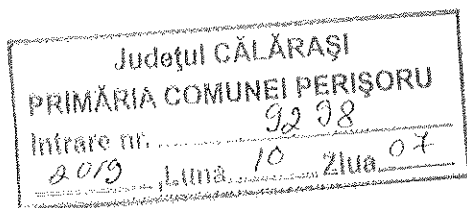 Județul CĂLĂRAȘI
PRIMĂRIA COMUNEI PERIȘORU
Intrare nr. 9298
2019, Luna 10 Ziua 07